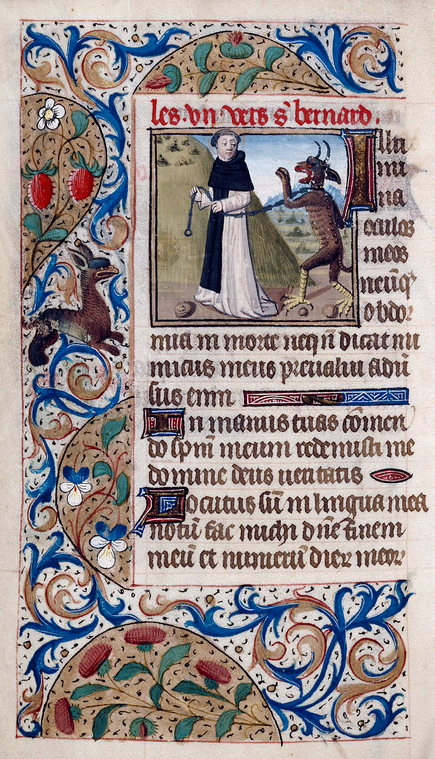 les vii vers s bernard.
Illu
mi
na
oculos
meos
neūq̄
obdor
mia in morte neqn̄ dicat ini
micus meus preualui adu
sus eum
In manus tuas cōmen
do sp̄m meum redemisti me
domine deus ueritatis
Locutus sū in lingua mea
notū fac michi dn̄e finem
meū et numerū dierz meorz